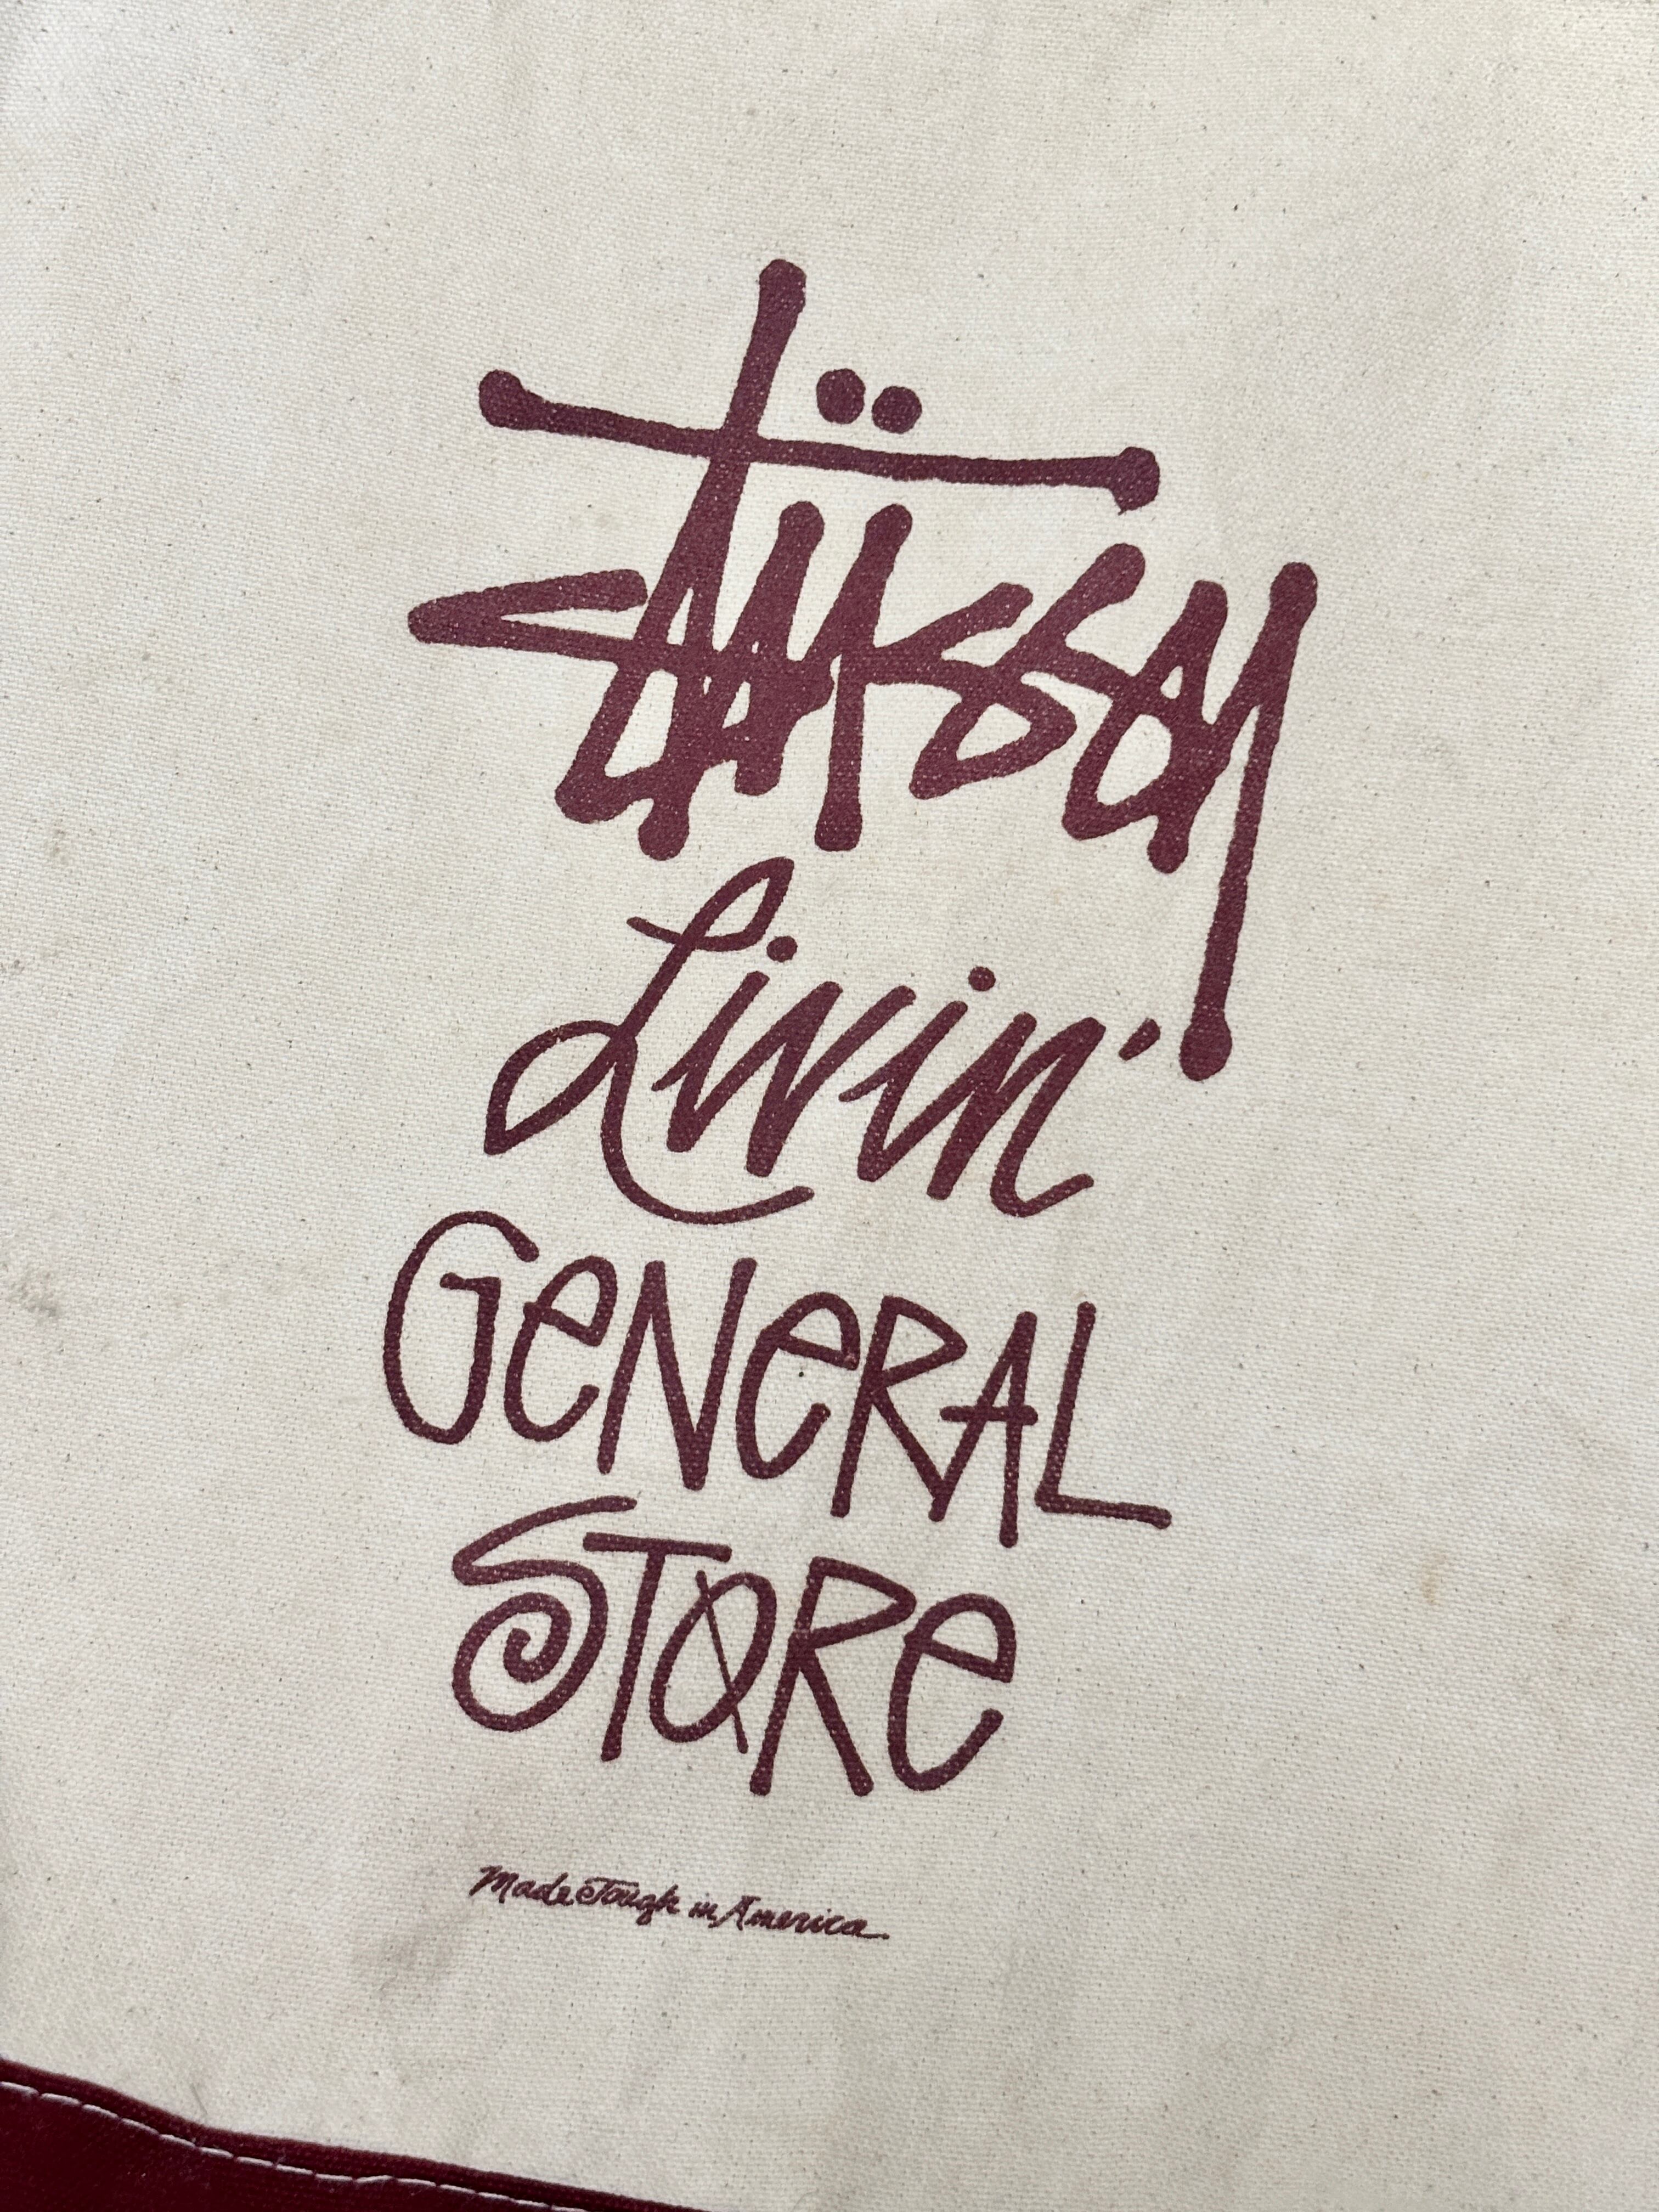 Stüssy
Livin'
GeNeRAL
STORe
Made Tough in America